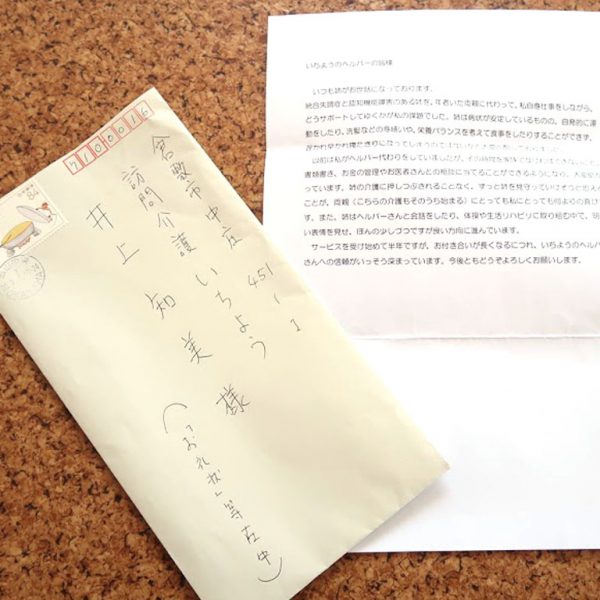 7100016
84
倉敷市中庄 451-1-1
訪問介護 いちよう
井上 知美 様
(「お礼状」等在中)
いちようのヘルパーの皆様
いつも姉がお世話になっております。
統合失調症と認知機能障害のある姉を、年老いた両親に代わって、私自身仕事をしながら、
どうサポートしてゆくかが私の課題でした。姉は病状が安定しているものの、自発的に運
動をしたり、洗髪などの身繕いや、栄養バランスを考えて食事をしたりすることができず、
以前は私がヘルパー代わりをしていましたが、
書類書き、お金の管理やお医者さんとの相談に当てることができるようになり、大変助か
っています。姉の介護に押しつぶされることなく、ずっと姉を見守っていけそうだと
ことが、両親（こちらの介護もそのうち始まる）にとっても私にとっても何よりの
す。また、姉はヘルパーさんと会話をしたり、体操や生活リハビリに取り組む中で、明
い表情を見せ、ほんの少しづつですが良い方向に進んでいます。
サービスを受け始めて半年ですが、お付き合いが長くなるにつれ、いちようのヘルパ
さんへの信頼がいっそう深まっています。今後ともどうぞよろしくお願いします。